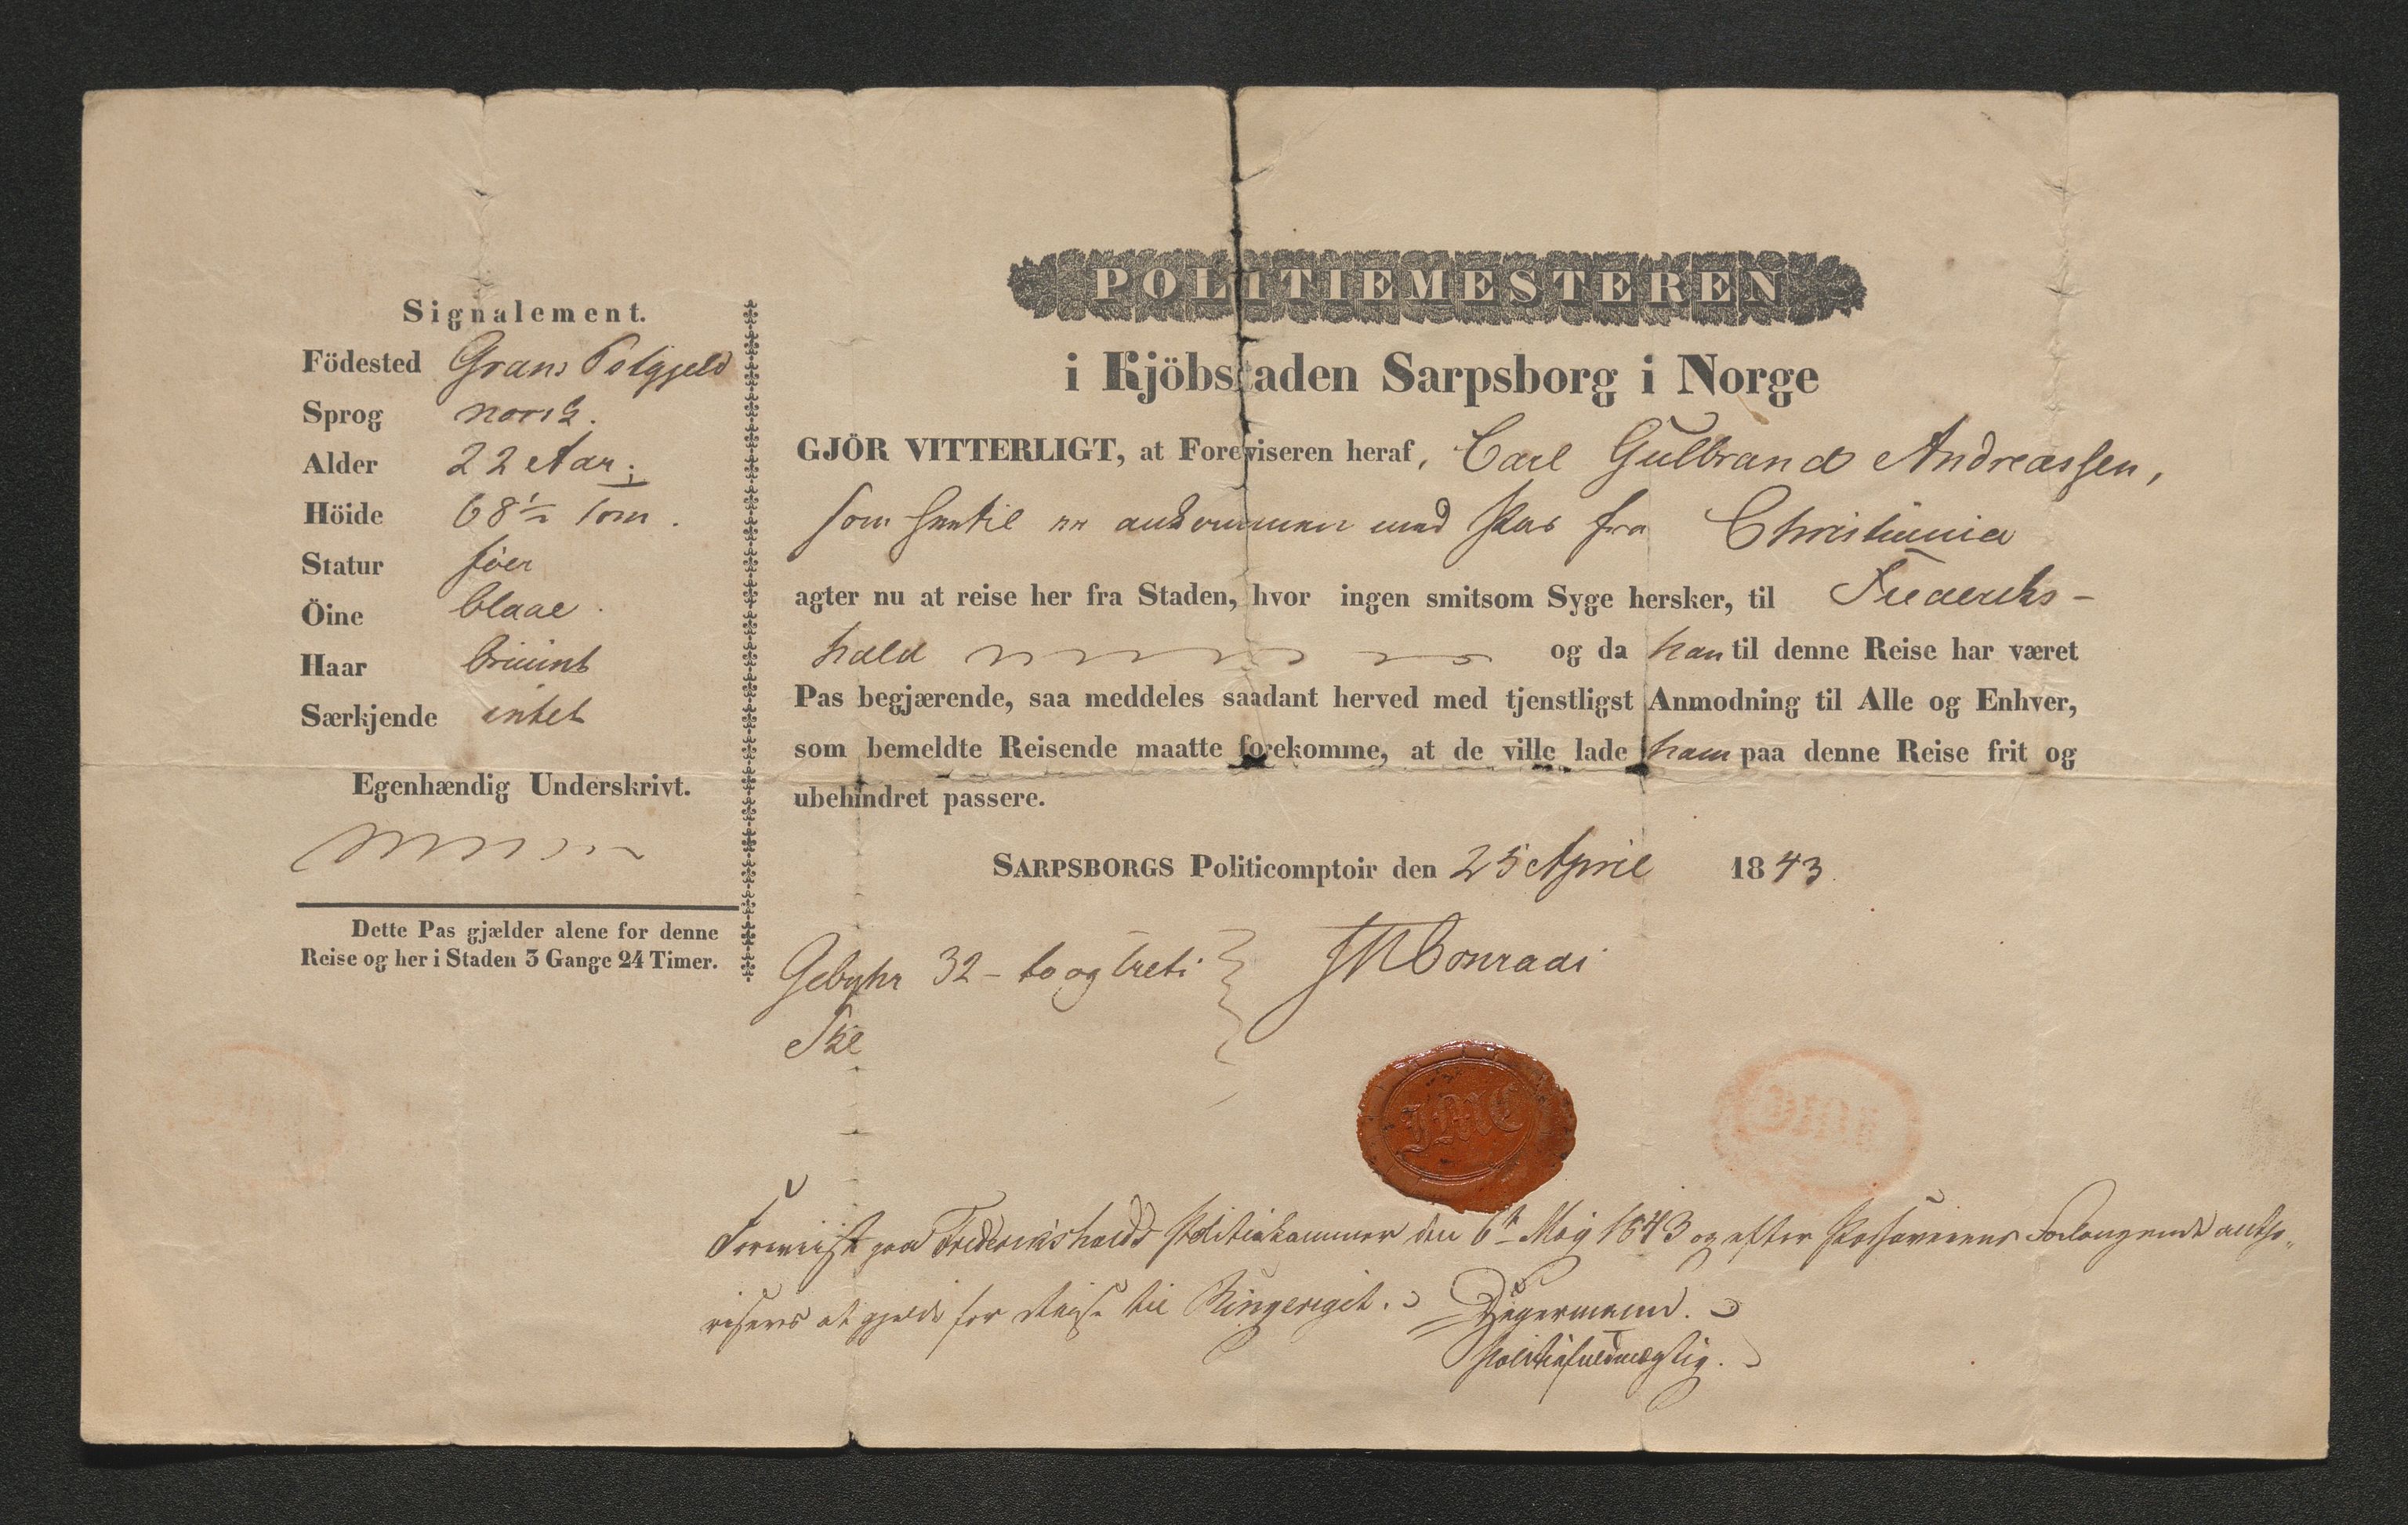 Signalement.
Födested Grans Præstgjeld
Sprog norsk.
Alder 22 Aar;
Höide 68½ Tom.
Statur föer
Öine blaae
Haar bruunt
Særkjende intet
Egenhændig Underskrivt.
Dette Pas gjælder alene for denne
Reise og her i Staden 3 Gange 24 Timer.
POLITIEMESTEREN
i Kjöbstaden Sarpsborg i Norge
GJÖR VITTERLIGT, at Foreviseren heraf, Carl Gulbrand Andreassen,
som hertil er ankommen med Pas fra Christiania
agter nu at reise her fra Staden, hvor ingen smitsom Syge hersker, til Frederiks-
hald og da han til denne Reise har været
Pas begjærende, saa meddeles saadant herved med tjenstligst Anmodning til Alle og Enhver,
som bemeldte Reisende maatte forekomme, at de ville lade ham paa denne Reise frit og
ubehindret passere.
SARPSBORGS Politicomptoir den 25 April 1843.
Gebyhr 32 - to og treti
Skl
JMConradi
JMC
Foreviist paa Frederikshalds Politiekammer den 6te May 1843 og efter Forlangende autho-
riseres at gjelde for Reise til Ringeriget.
Politiefuldmægtig.